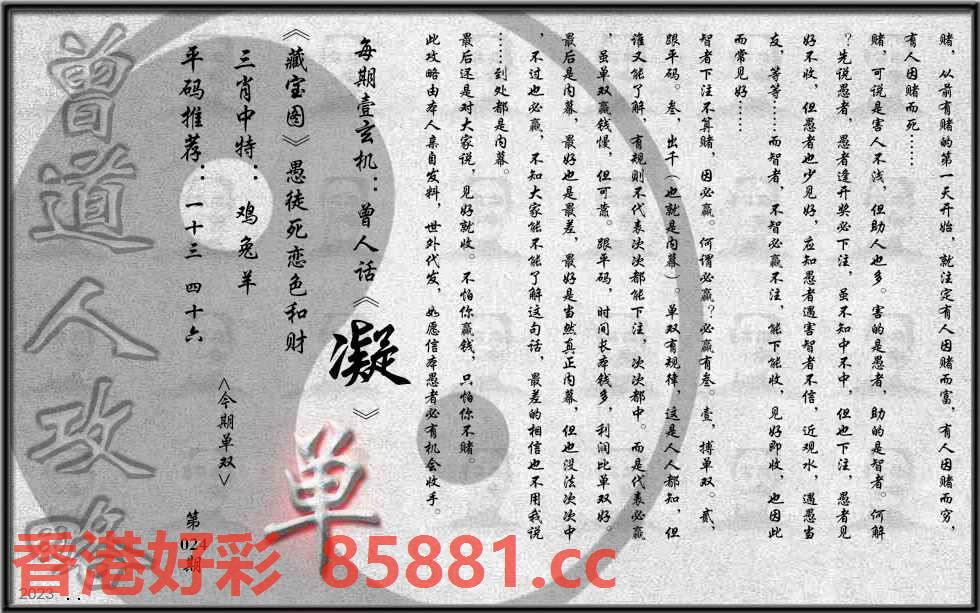 赌，从前有赌的第一天开始，就注定有人因赌而富，有人因赌而穷，
有人因赌而死……
赌，可说是害人不浅，但助人也多。害的是愚者，助的是智者。何解
？先说愚者，愚者逢开奖必下注，虽不知中不中，但也下注，愚者见
好不收，但愚者也少见好，应知愚者遇害智者不信，近观水，遇愚当
友，等等……而智者，不智必赢不注，能下能收，见好即收，也因此
而常见好……
智者下注不算赌，因必赢。何谓必赢？必赢有叁。壹，搏单双。贰，
跟平码。叁，出千（也就是内幕）。单双有规律，这是人人都知，但
谁又能了解，有规则不代表次次都能下注，次次都中。而是代表必赢
，虽单双赢钱慢，但可靠。跟平码，时间长本钱多，利润比单双好。
最后是内幕，最好也是最差，最好是当然真正内幕，但也没法次次中
，不过也必赢，不知大家能不能了解这句话，最差的相信也不用我说
……到处都是内幕。
最后还是对大家说，见好就收。不怕你赢钱，只怕你不赌。
此攻略由本人亲自发料，世外代发，如愿信本愚者必有机会收手。
每期壹玄机：曾人话《凝》
《藏宝图》愚徒死恋色和财
三肖中特：鸡兔羊
平码推荐：一十三 四十六
<今期单双>
单
第
024
期
曾道人攻略
香港好彩 85881.cc
2023